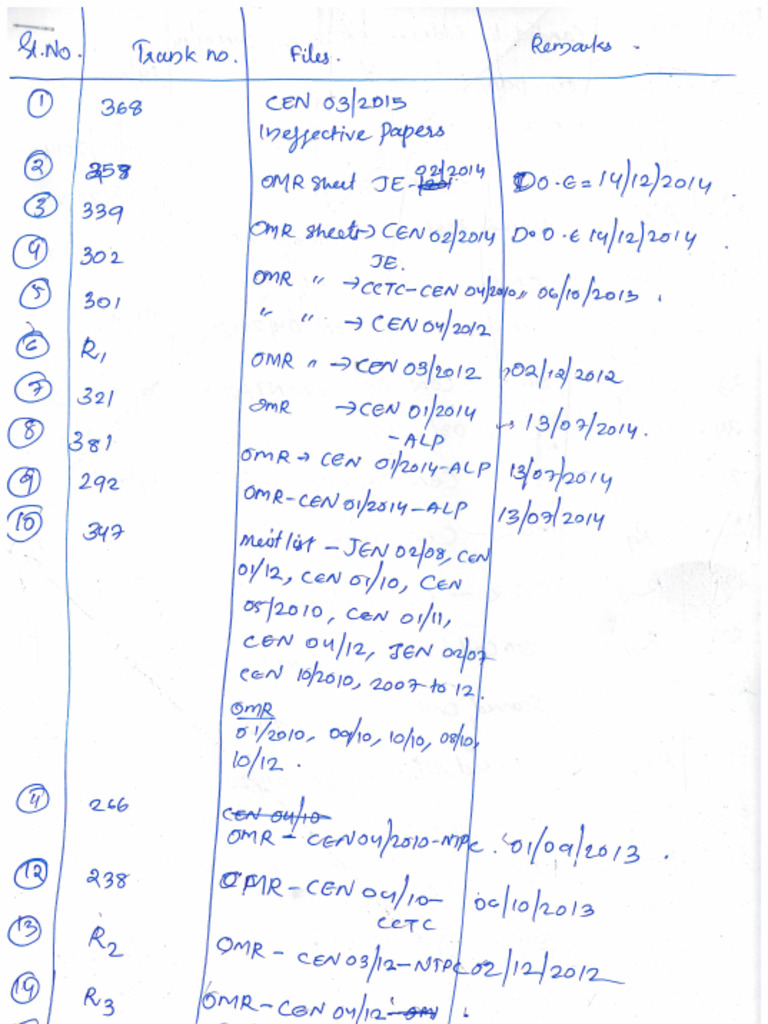 Sl.No. Trunk no. Files. Remarks.
① 368 CEN 03/2015
Ineffective Papers
② 358 OMR sheet JE-02/2014 DO.E = 14/12/2014
③ 339 OMR sheets → CEN 02/2014 D.O.E 14/12/2014
JE.
④ 302 OMR " → CCTC-CEN 04/2010, " 06/10/2013
⑤ 301 " " → CEN 04/2012
⑥ R1 OMR " → CEN 03/2012 → 02/12/2012
⑦ 321 OMR → CEN 01/2014 → 13/07/2014.
-ALP
⑧ 381 OMR → CEN 01/2014-ALP 13/07/2014
⑨ 292 OMR-CEN 01/2014-ALP 13/07/2014
⑩ 347 merit list - JEN 02/08, CEN
01/12, CEN 07/10, CEN
05/2010, CEN 01/11,
CEN 04/12, JEN 02/07
CEN 10/2010, 2007 to 12.
OMR
01/2010, 09/10, 10/10, 08/10,
10/12.
⑪ 266 CEN 04/10
OMR - CEN 04/2010-NTPC. 01/09/2013.
⑫ 238 OMR-CEN 04/10- 06/10/2013
CCTC
⑬ R2 OMR - CEN 03/12-NTPC 02/12/2012
⑭ R3 OMR-CEN 04/12